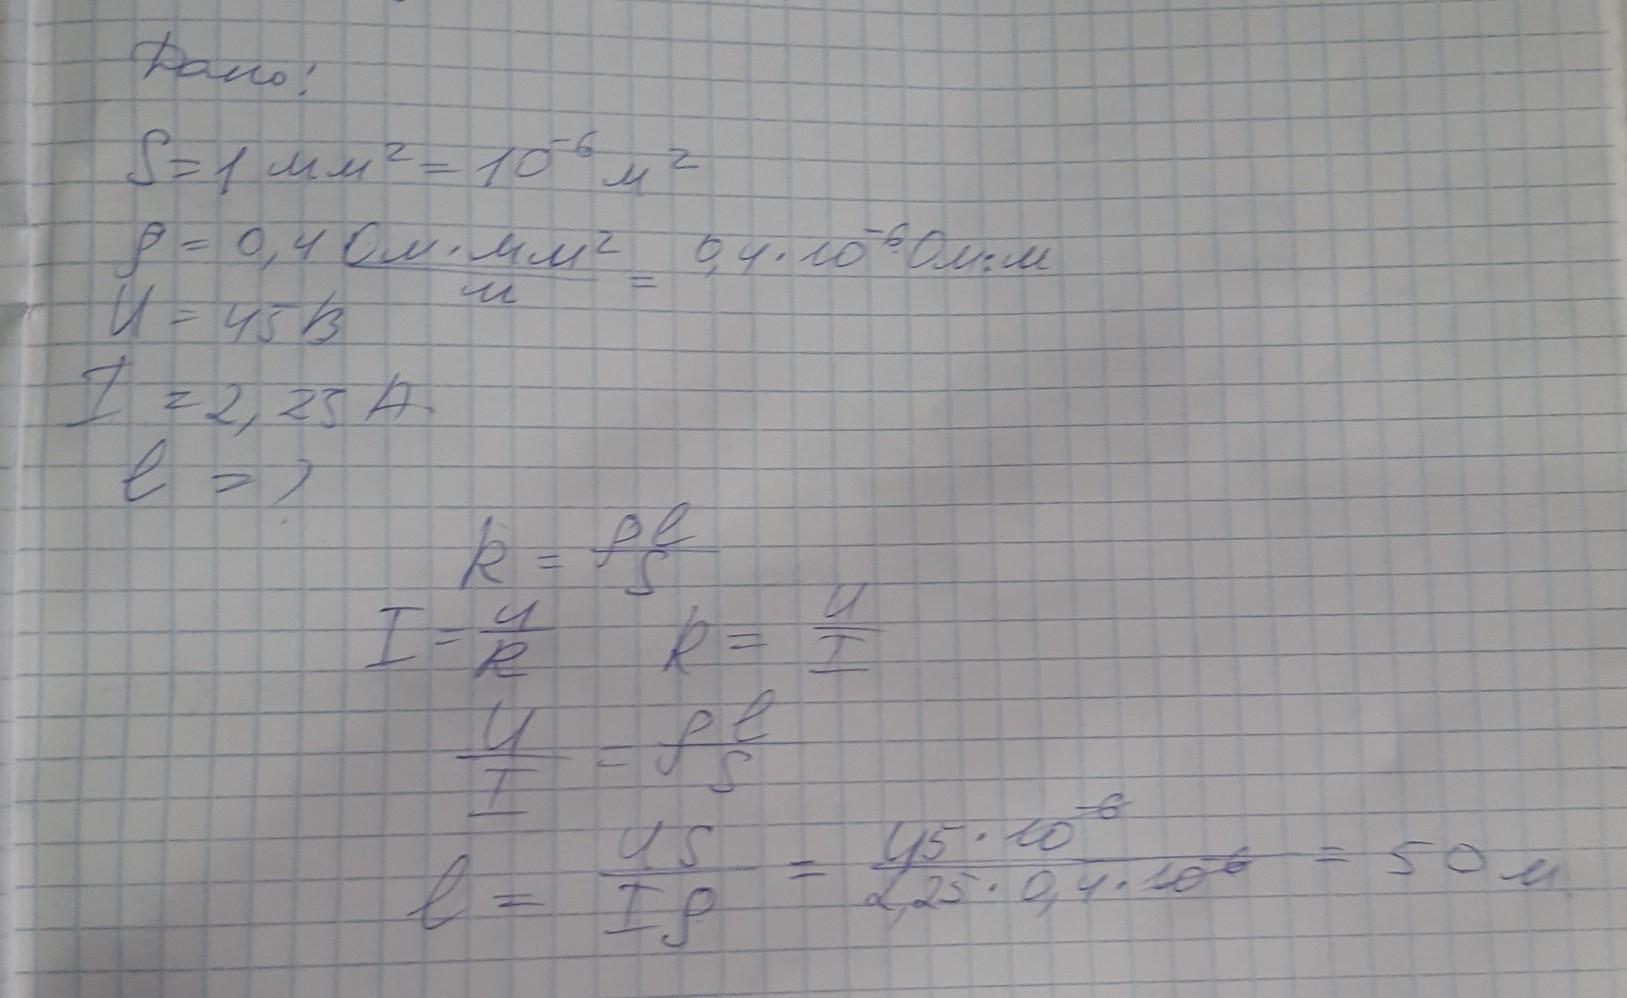 Дано:
S = 1 мм² = 10⁻⁶ м²
ρ = 0,4 Ом·мм²/м = 0,4·10⁻⁶ Ом·м
U = 45 В
I = 2,25 А.
l = ?
R = ρl/S
I = U/R R = U/I
U/I = ρl/S
l = US/Iρ = 45·10⁻⁶/2,25·0,4·10⁻⁶ = 50 м.